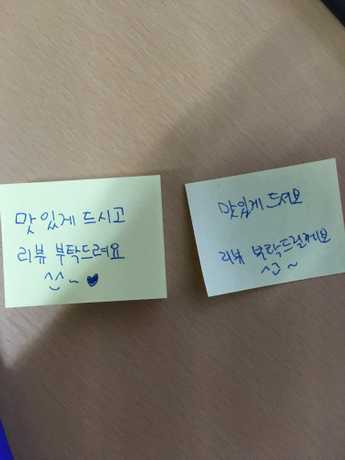 맛있게 드시고
리뷰 부탁드려요
^^~♥
맛있게 드세요
리뷰 부탁드릴게요
^^~